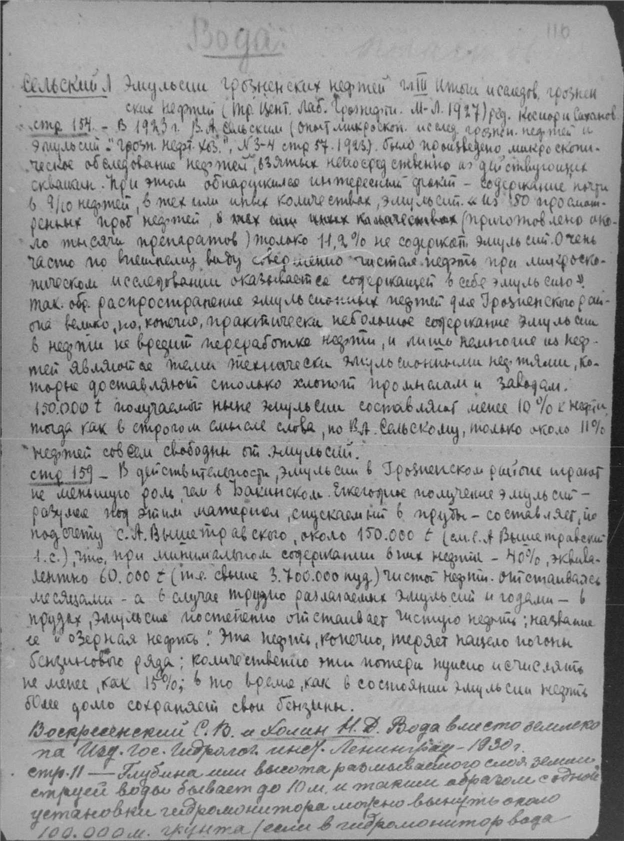 116
Вода.
Сельский Л Эмульсии грозненских нефтей гл III Итоги исследов. грознен
ских нефтей (Тр. Цент. Лаб. Грознефти. М-Л. 1927) ред. Косиор и Саханов.
стр. 154. – В 1923 г. В.А. Сельским (опыт микроскоп. исслед. грознен. нефтей и
эмульсий "Грозн. нефт. хоз." N 3-4 стр 57. 1923). было произведено микроскопи-
ческое обследование нефтей, взятых непосредственно из действующих
скважин. При этом обнаружился интересный факт – содержание почти
в 9/10 нефтей, в тех или иных количествах, эмульсий. и из 150 просмот-
ренных проб нефтей, в тех или иных количествах (приготовлено око-
ло тысячи препаратов) только 11,2% не содержат эмульсий. Очень
часто по внешнему виду совершенно чистая нефть при микроско-
пическом исследовании оказывается содержащей в себе эмульсию".
Так. обр. распространение эмульсионных нефтей для Грозненского рай-
она велико, но, конечно, практически небольшое содержание эмульсии
в нефти не вредит переработке нефти, и лишь немногие из неф-
тей являются теми технически эмульсионными нефтями, ко-
торые доставляют столько хлопот промыслам и заводам.
150.000 t получаемой ныне эмульсии составляют менее 10% к нефти,
тогда как в строгом смысле слова, по В.А. Сельскому, только около 11%
нефтей совсем свободны от эмульсий.
стр 159 – В действительности, эмульсии в Грозненском районе играют
не меньшую роль, чем в Бакинском. Ежегодное получение эмульсий –
разумея под этим материал, спускаемый в пруды – составляет, по
подсчету С.А. Вышетравского, около 150.000 t (см. С.А Вышетравский
l. c.), что, при минимальном содержании в них нефти – 40%, эквива-
лентно 60.000 t (т.е. свыше 3.700.000 пуд.) чистой нефти. Отстаиваясь
месяцами – а в случае трудно разлагаемых эмульсий и годами – в
прудах, эмульсия постепенно отстаивает чистую нефть; название
ее "озерная нефть". Эта нефть, конечно, теряет нацело погоны
бензинового ряда; количественно эти потери нужно исчислять
не менее, как 15%; в то время, как в состоянии эмульсии нефть
более долго сохраняет свои бензины.
Воскресенский С.В. и Холин Н.Д. Вода вместо землеко
па Изд. гос. Гидролог. инст. Ленинград – 1930 г.
стр. 11 – Глубина или высота размываемого слоя земли
струей воды бывает до 10 м. и таким образом с одной
установки гидромонитора можно вынуть около
100.000 м. грунта (если в гидромонитор вода